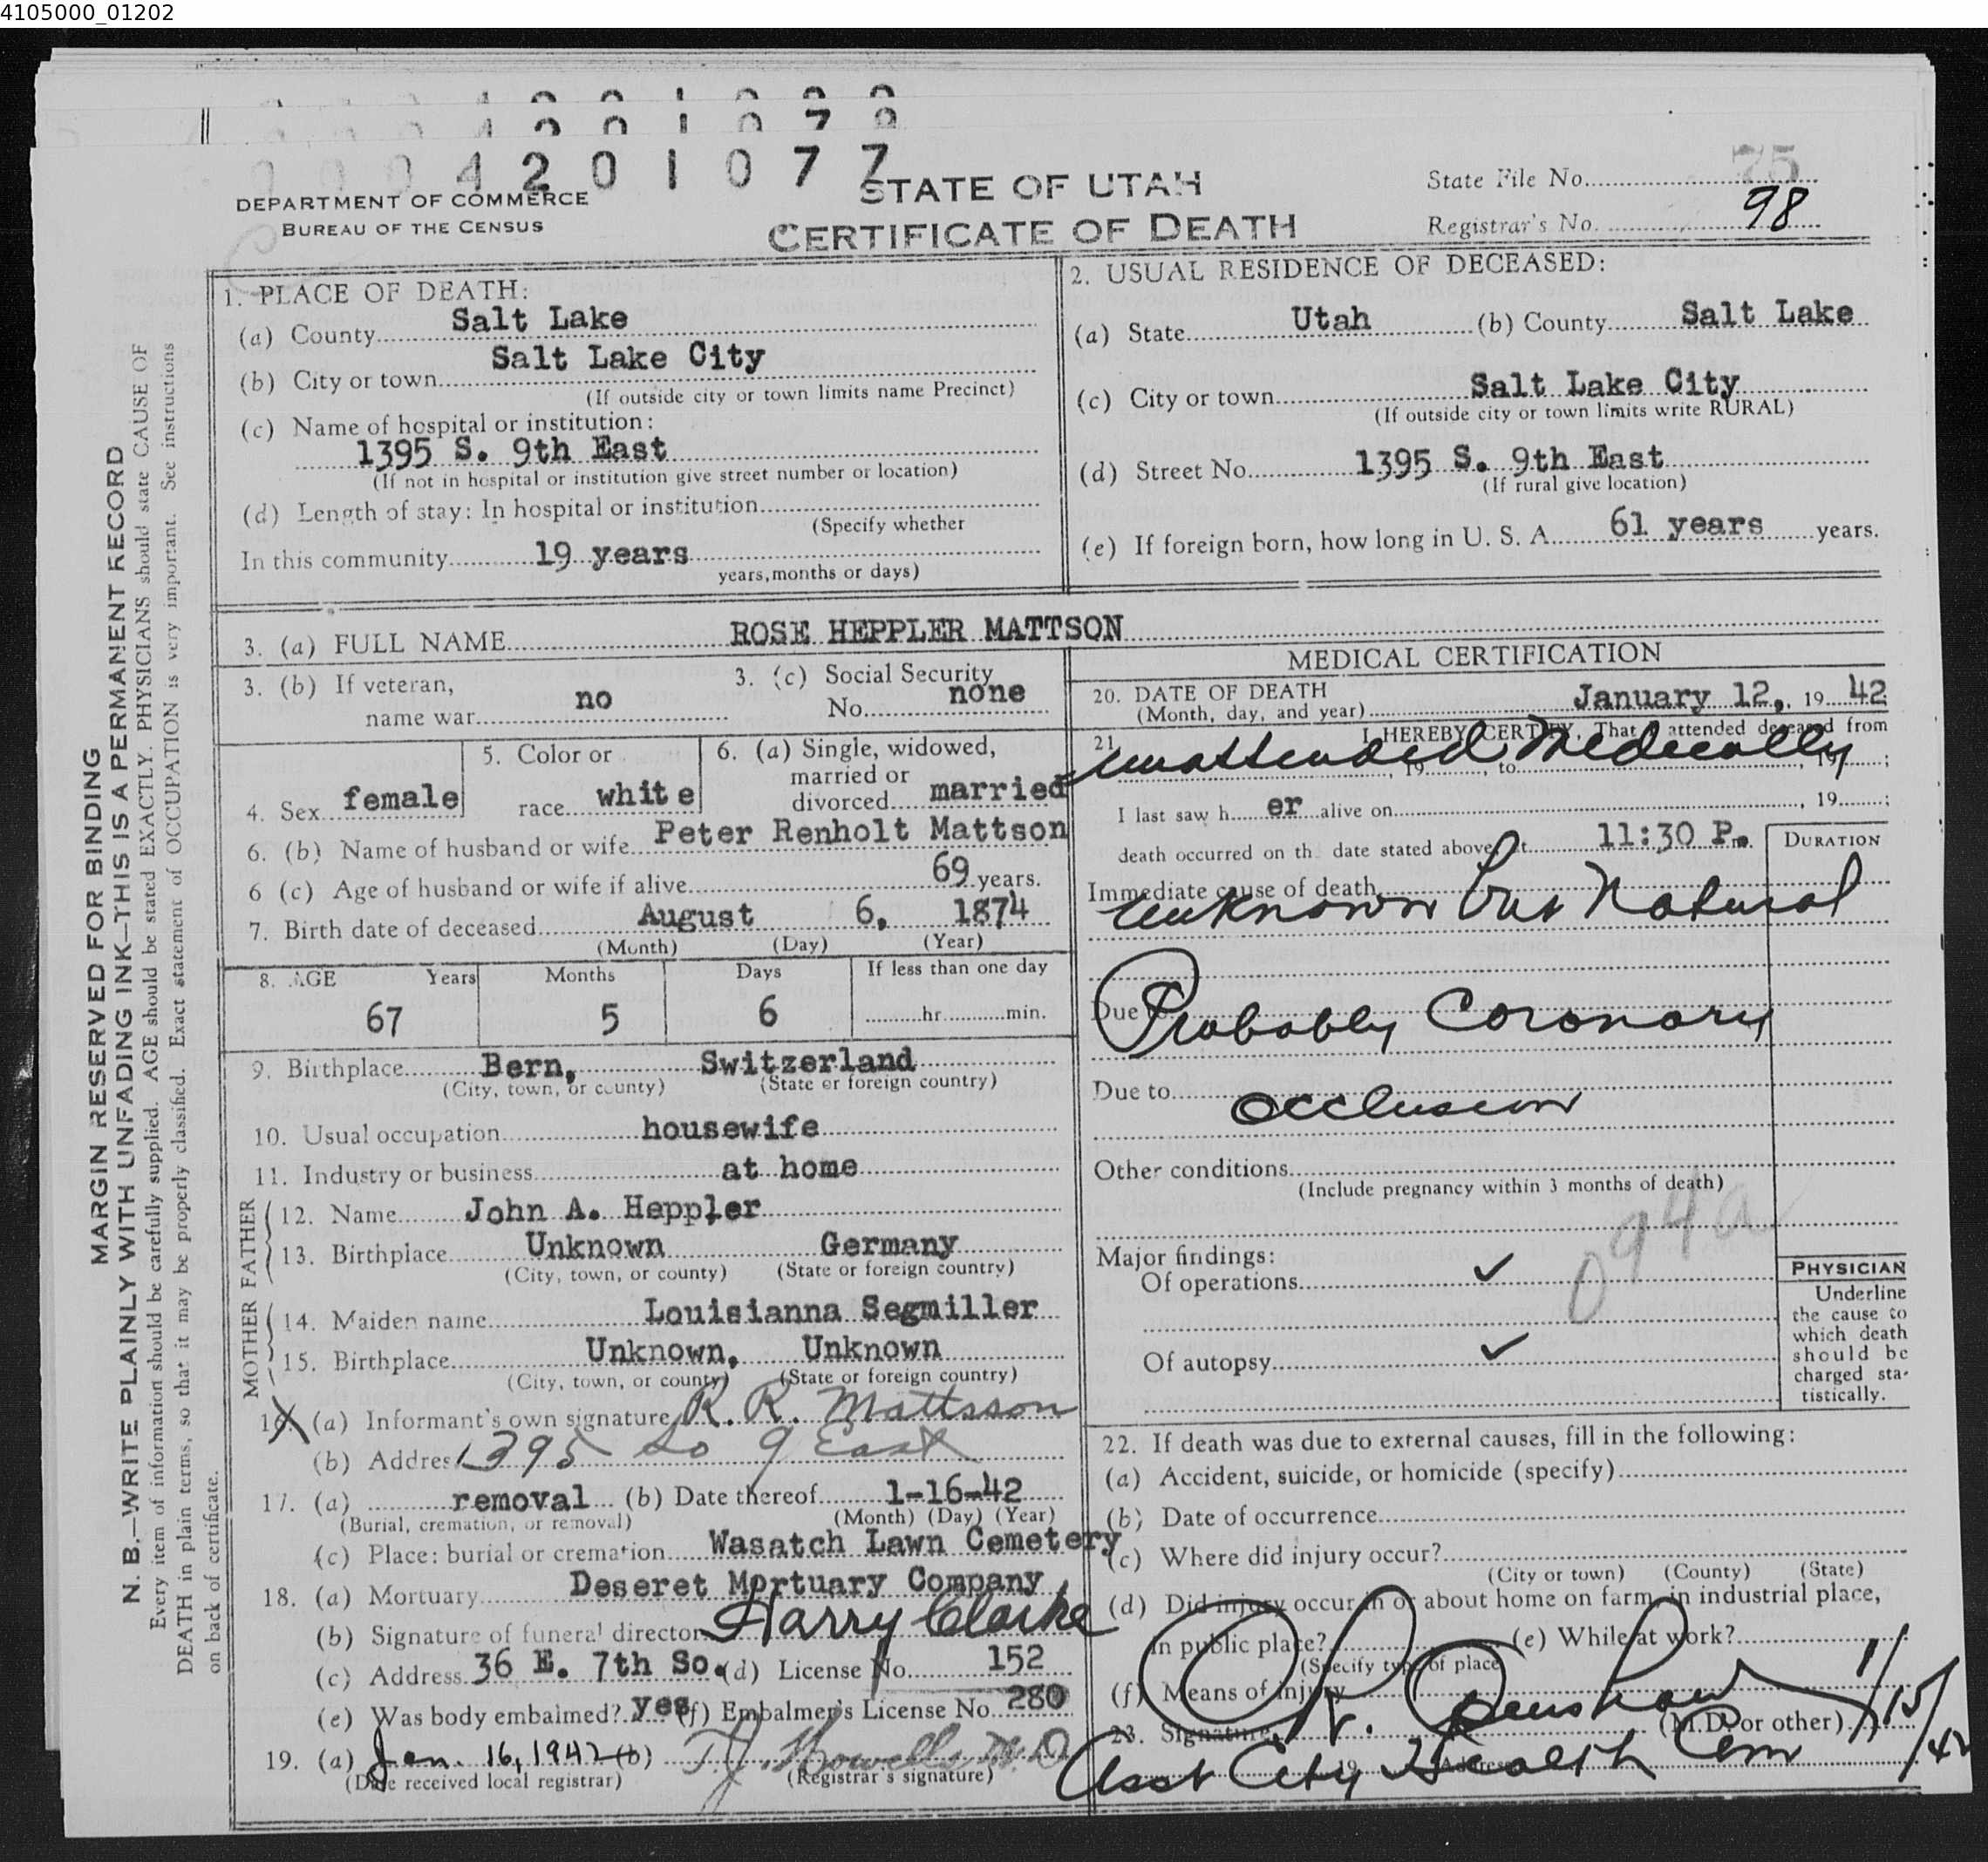 4105000_01202
0 0 0 4 2 0 1 0 7 7
DEPARTMENT OF COMMERCE
BUREAU OF THE CENSUS
STATE OF UTAH
CERTIFICATE OF DEATH
State File No. 75
Registrar's No. 98
MARGIN RESERVED FOR BINDING
N. B.—WRITE PLAINLY WITH UNFADING INK—THIS IS A PERMANENT RECORD
Every item of information should be carefully supplied. AGE should be stated EXACTLY. PHYSICIANS should state CAUSE OF
DEATH in plain terms, so that it may be properly classified. Exact statement of OCCUPATION is very important. See instructions
on back of certificate.
1. PLACE OF DEATH:
(a) County Salt Lake
(b) City or town Salt Lake City
(If outside city or town limits name Precinct)
(c) Name of hospital or institution:
1395 S. 9th East
(If not in hospital or institution give street number or location)
(d) Length of stay: In hospital or institution
(Specify whether
In this community 19 years
years, months or days)
2. USUAL RESIDENCE OF DECEASED:
(a) State Utah (b) County Salt Lake
(c) City or town Salt Lake City
(If outside city or town limits write RURAL)
(d) Street No. 1395 S. 9th East
(If rural give location)
(e) If foreign born, how long in U. S. A. 61 years years.
3. (a) FULL NAME ROSE HEPPLER MATTSON
3. (b) If veteran,
name war no
3. (c) Social Security
No. none
4. Sex female
5. Color or
race white
6. (a) Single, widowed,
married or
divorced married
6. (b) Name of husband or wife Peter Renholt Mattson
6 (c) Age of husband or wife if alive 69 years.
7. Birth date of deceased August 6, 1874
(Month) (Day) (Year)
8. AGE Years Months Days If less than one day
67 5 6 hr. min.
9. Birthplace Bern, Switzerland
(City, town, or county) (State or foreign country)
10. Usual occupation housewife
11. Industry or business at home
FATHER
12. Name John A. Heppler
13. Birthplace Unknown Germany
(City, town, or county) (State or foreign country)
MOTHER
14. Maiden name Louisianna Segmiller
15. Birthplace Unknown, Unknown
(City, town, or county) (State or foreign country)
16. (a) Informant's own signature R. R. Mattsson
(b) Address 1395 So 9 East
17. (a) removal (b) Date thereof 1-16-42
(Burial, cremation, or removal) (Month) (Day) (Year)
(c) Place: burial or cremation Wasatch Lawn Cemetery
18. (a) Mortuary Deseret Mortuary Company
(b) Signature of funeral director Harry Clarke
(c) Address 36 E. 7th So. (d) License No. 152
(e) Was body embalmed? yes (f) Embalmer's License No. 280
19. (a) Jan. 16, 1942 (b) T. J. Howells M.D.
(Date received local registrar) (Registrar's signature)
MEDICAL CERTIFICATION
20. DATE OF DEATH
(Month, day, and year) January 12, 19 42
21. I HEREBY CERTIFY, That I attended deceased from
unattended Medically
, 19 , to , 19 ;
I last saw h er alive on , 19 ;
death occurred on the date stated above, at 11:30 P.m.
DURATION
Immediate cause of death
unknown but Natural
Due to Probably Coronary
Due to occlusion
Other conditions
(Include pregnancy within 3 months of death)
094a
Major findings:
Of operations ✓
Of autopsy ✓
PHYSICIAN
Underline
the cause to
which death
should be
charged sta-
tistically.
22. If death was due to external causes, fill in the following:
(a) Accident, suicide, or homicide (specify)
(b) Date of occurrence
(c) Where did injury occur?
(City or town) (County) (State)
(d) Did injury occur in or about home on farm, in industrial place,
in public place? (e) While at work?
(Specify type of place)
(f) Means of injury
23. Signature (M.D. or other) 1/15/42
Asst City Health Com
Address